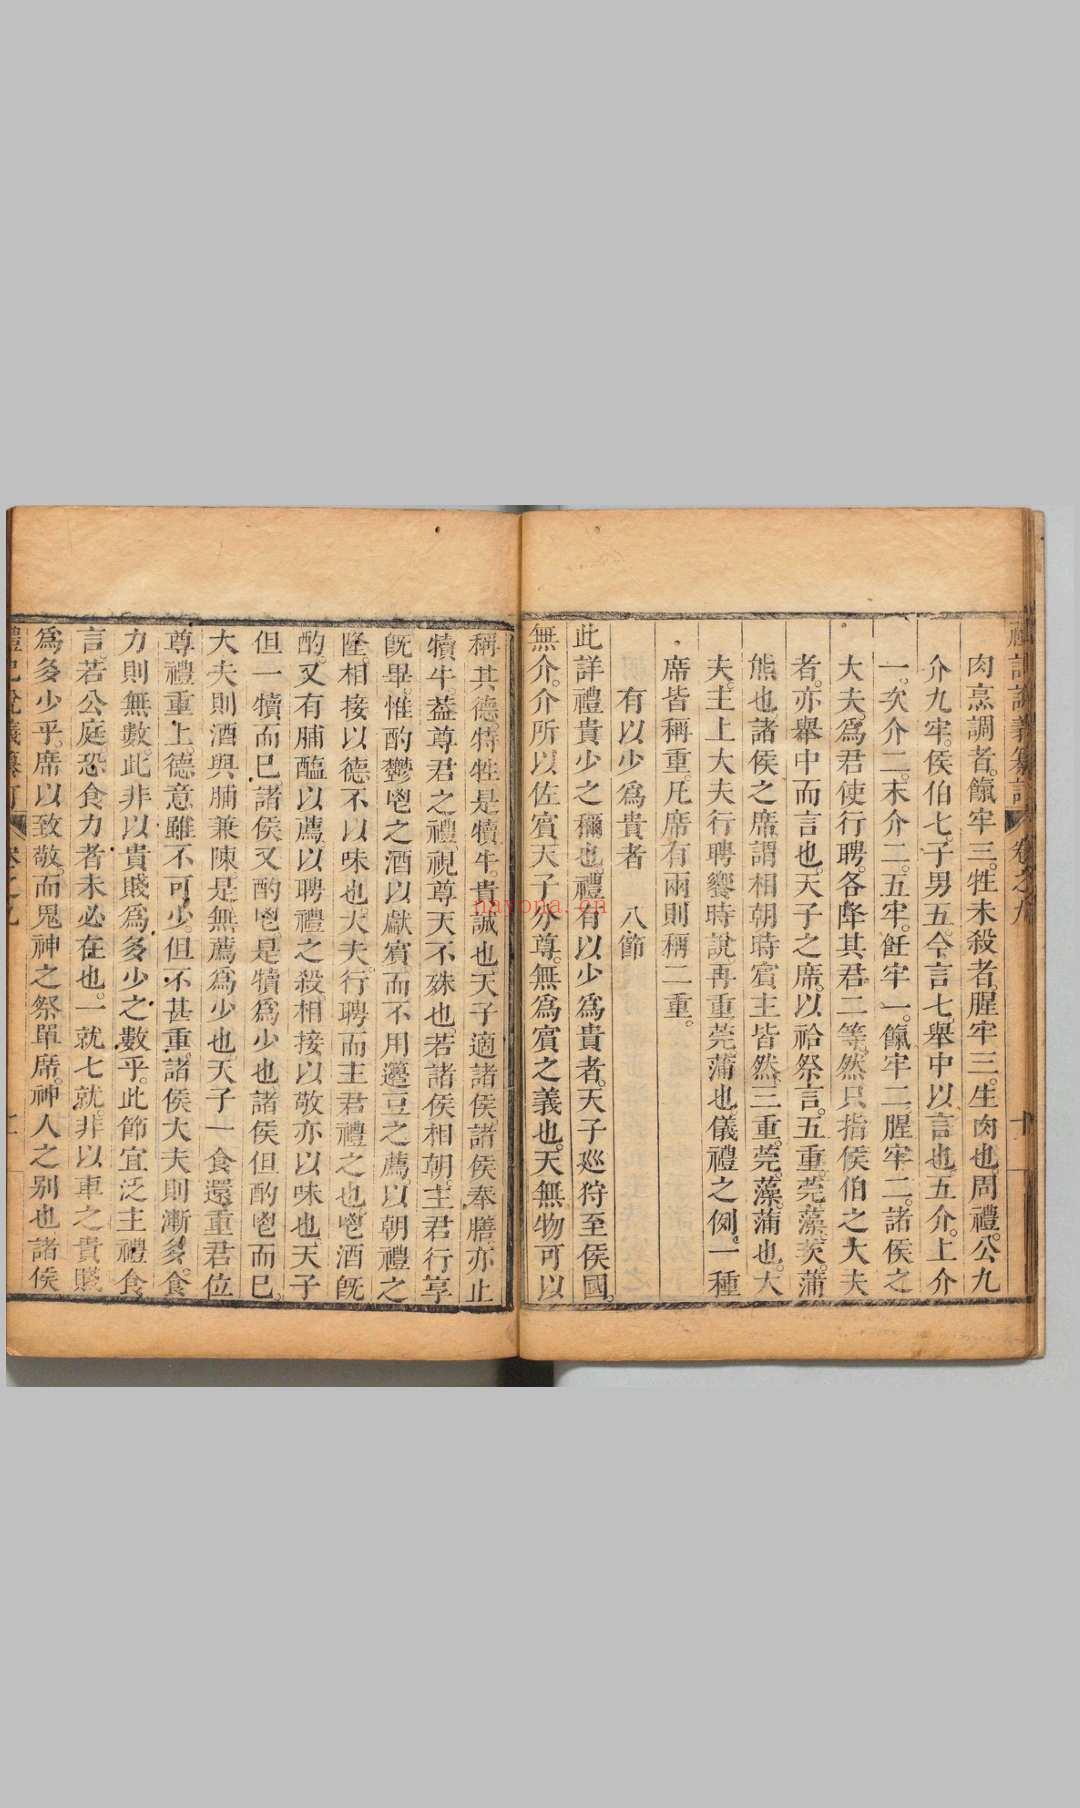 禮記說義纂訂 卷之九 十
肉烹調者。餼牢三。牲未殺者。腥牢三。生肉也。周禮。公九
介九牢。侯伯七。子男五。今言七。舉中以言也。五介。上介
一。次介二。末介二。五牢。飪牢一。餼牢二。腥牢二。諸侯之
大夫。爲君使行聘。各降其君二等。然只指侯伯之大夫
者。亦舉中而言也。天子之席。以祫祭言。五重。莞藻茨蒲
熊也。諸侯之席。謂相朝時賓主皆然。三重。莞藻蒲也。大
夫。主上大夫行聘饗時說。再重。莞蒲也。儀禮之例。一種
席皆稱重。凡席有兩則稱二重。
有以少爲貴者 八節
此詳禮貴少之稱也。禮有以少爲貴者。天子廵狩至侯國。
無介。介所以佐賓。天子分尊。無爲賓之義也。天無物可以
稱其德。特牲是犢牛。貴誠也。天子適諸侯。諸侯奉膳。亦止
犢牛。葢尊君之禮。視尊天不殊也。若諸侯相朝。主君行享
既畢。惟酌鬱鬯之酒以獻賓。而不用籩豆之薦。以朝禮之
隆。相接以德。不以味也。大夫。行聘而主君禮之也。鬯酒既
酌。又有脯醢以薦。以聘禮之殺。相接以敬。亦以味也。天子
但一犢而已。諸侯又酌鬯。是犢爲少也。諸侯但酌鬯而已。
大夫則酒與脯兼陳。是無薦爲少也。天子一食。還重君位
尊禮重上。德意雖不可少。但不甚重。諸侯大夫則漸多。食
力則無數。此非以貴賤爲多少之數乎。此節宜泛主禮食
言。若公庭。恐食力者未必在也。一就七就。非以車之貴賤
爲多少乎。席以致敬。而鬼神之祭單席。神人之别也。諸侯
禮記說義纂訂 卷之九